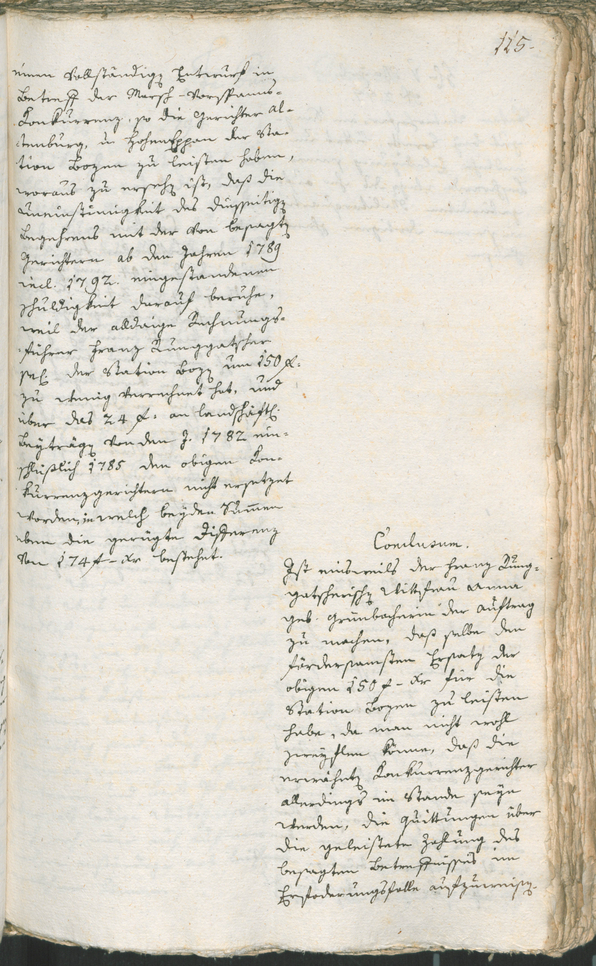 115.
einen vollständigen Entwurf in
Betreff der Marsch-Vorspanns-
Konkurrenz, so die Gerichter Al-
tenburg, u Hohen Eppan der Sta-
tion Bozen zu leisten haben,
woraus zu ersehen ist, daß die
Uneinstimigkeit des diesseitigen
Begehrens mit der von besagten
Gerichtern ab den Jahren 1789
incl. 1792. eingestandenen
Schuldigkeit darauf beruhe,
weil der alldaige Rechnungs-
führer Franz Runggatscher
sel. der Station Bozen um 150 f.
zu wenig verrechnet hat, und
über das 24 f. an landschäftl.
Beyträgen von den J. 1782 ein-
schlüßlich 1785 den obigen Kon-
kurrenzgerichtern nicht ersetzet
worden, in welch beyden Summen
eben die gerügte Differenz
von 174 f - xr bestehet.
Conclusum.
Ist einsweils der Franz Rung-
gatscherischen Wittfrau Anna
geb. Grünbacherin der Auftrag
zu machen, daß selbe den
fördersamsten Ersatz der
obigen 150 f - xr für die
Station Bozen zu leisten
habe, da man nicht wohl
zweyflen könne, daß die
erwähnten Konkurrenzgerichter
allerdings im Stande seyn
werden, die Quittungen über
die geleistete Zahlung des
besagten Betreffnisses im
Erfoderungsfalle aufzuweisen.